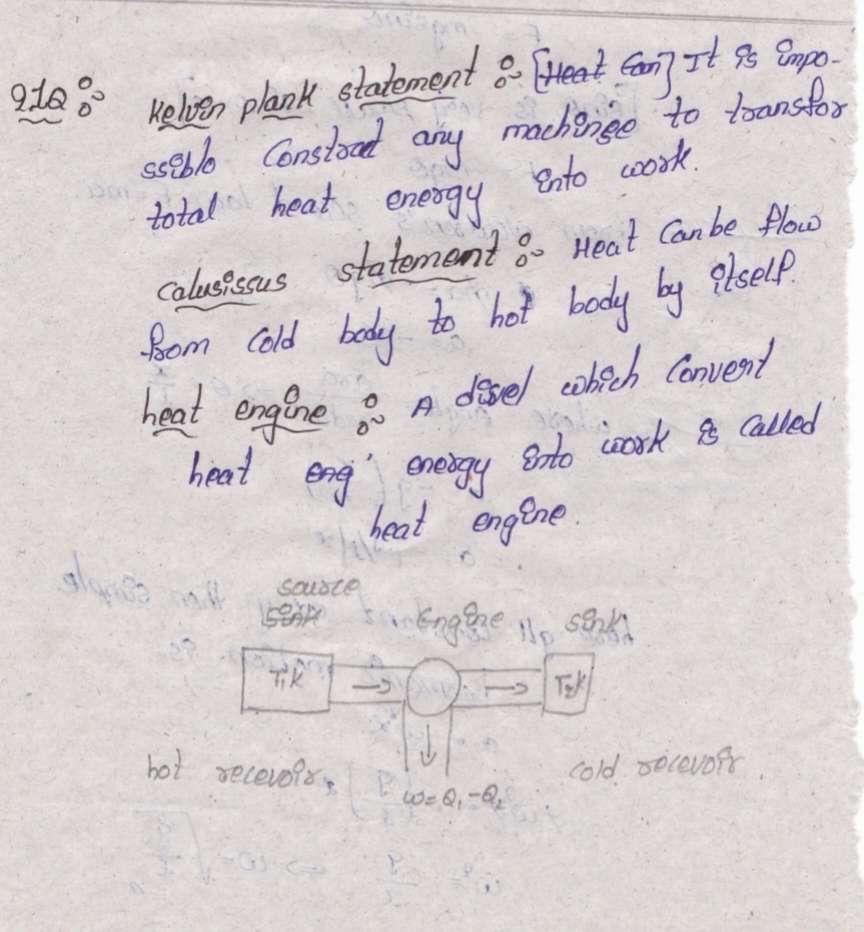 21Q :~ Kelven plank statement :~ [Heat Can] It is impo-
ssiblo Constrat any machinge to transfor
total heat energy into work.
calusissus statement :~ Heat Canbe flow
from cold body to hot body by itself.
heat engine :~ A disvel which Convert
heat eng' energy into work is called
heat engine.
source
sink Engine sink
T₁K → → T₂K
↓
hot recevoir. cold recevoir.
W=Q₁-Q₂